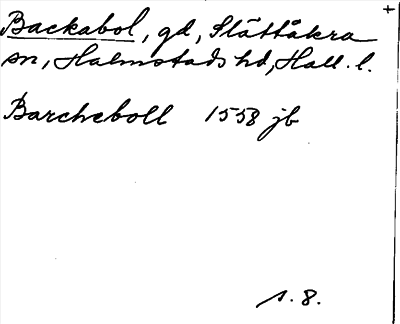 +
Backabol, gd, Slättåkra
sn, Halmstads hd, Hall. l.
Barcheboll 1558 jb
s. 8.